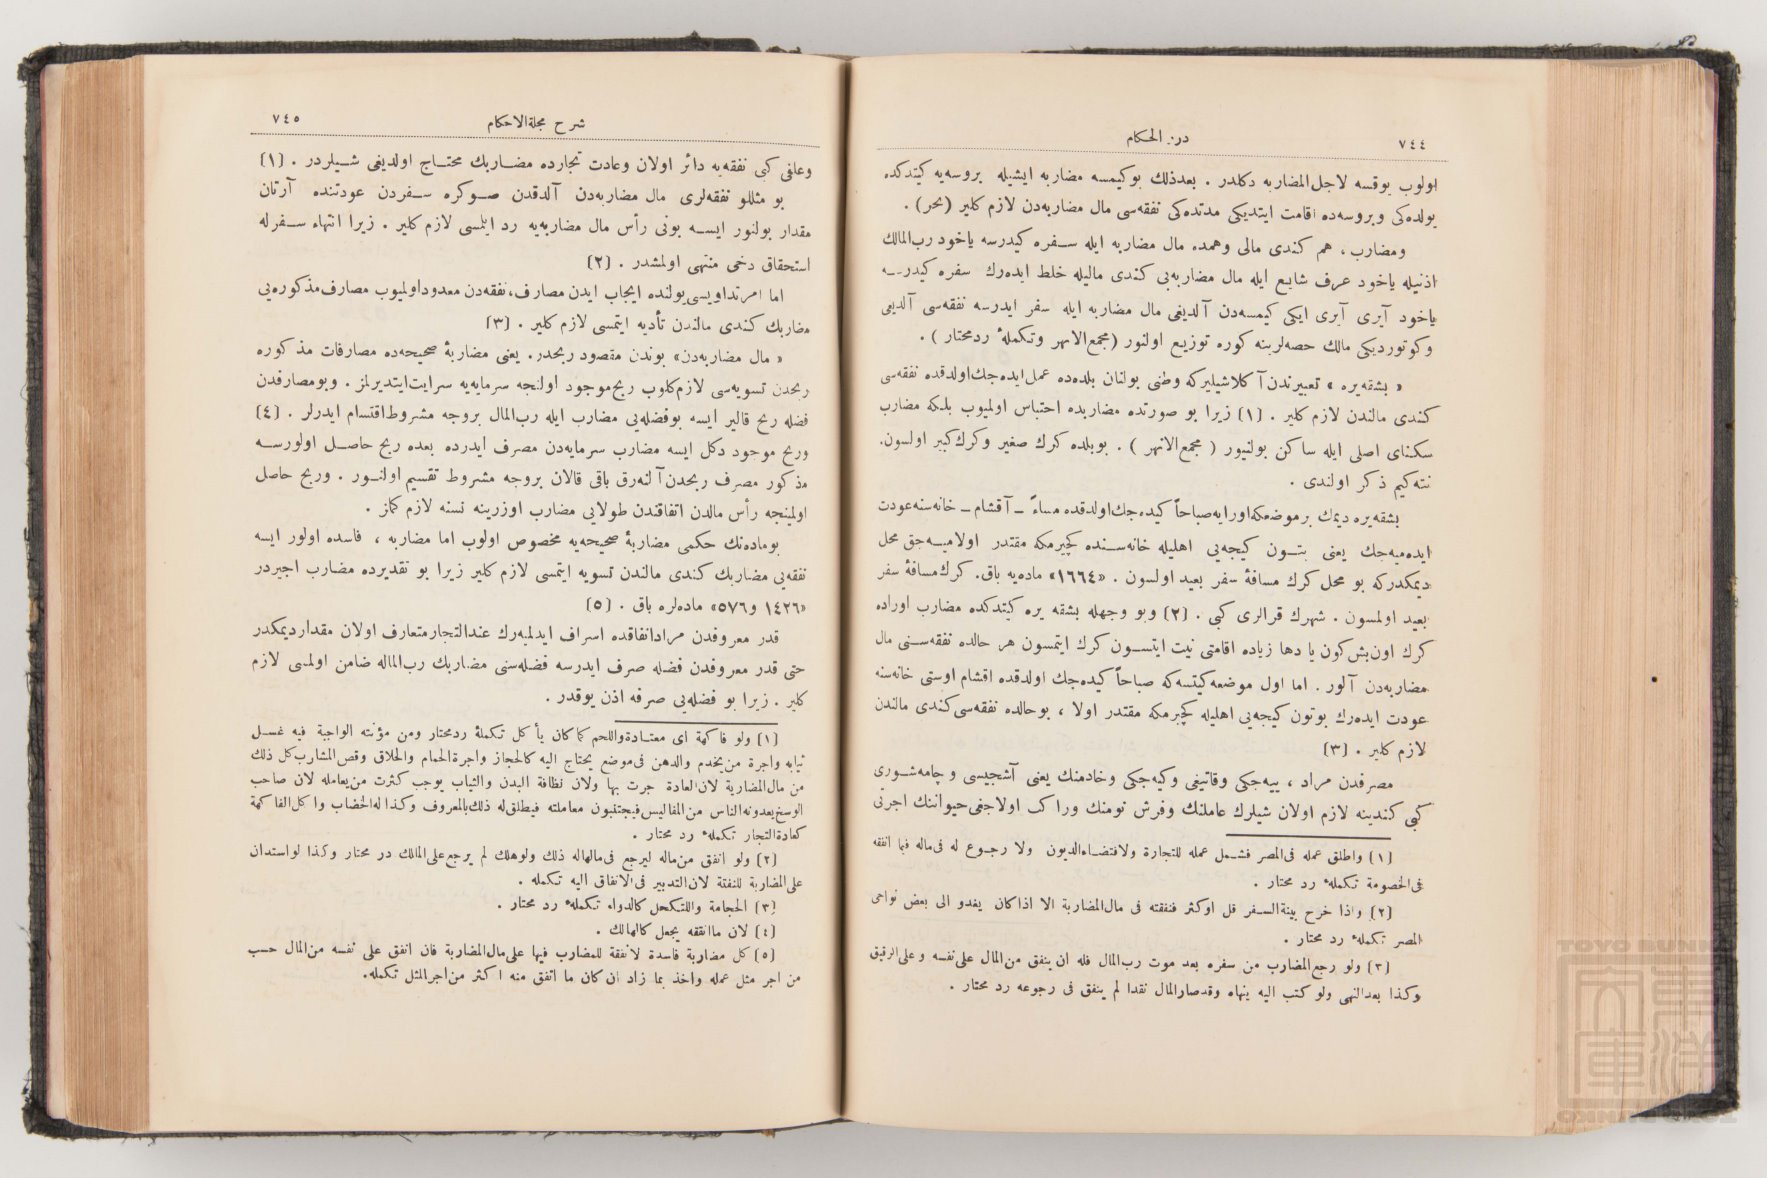 ٧٤٤
درر الحكام
اولوب یوقسه لاجل‌المضاربه دكلدر . بعدذلك بوكیمسه مضاربه ایشیله بروسه‌یه كیتدكده
یولده‌كی وبروسه‌ده اقامت ایتدیكی مدتده‌كی نفقه‌سی مال مضاربه‌دن لازم كلیر (بحر) .
ومضارب ، هم كندی مالی وهمده مال مضاربه ایله سفره كیدرسه یاخود رب‌المالك
اذنیله یاخود عرف شایع ایله مال مضاربه‌یی كندی مالیله خلط ایده‌رك سفره كیدرسه
یاخود آیری آیری ایكی كیمسه‌دن آلدیغی مال مضاربه ایله سفر ایدرسه نفقه‌سی آلدیغی
وكوتوردیكی مالك حصه‌لرینه كوره توزیع اولنور (مجمع‌الانهر وتكملهٔ ردمحتار ) .
« بشقه‌یره » تعبیرندن آكلاشیلیركه وطنی بولنان بلده‌ده عمل ایده‌جك اولدقده نفقه‌سی
كندی مالندن لازم كلیر . (١) زیرا بو صورتده مضاربده احتباس اولمیوب بلكه مضارب
سكنای اصلی ایله ساكن بولنیور ( مجمع‌الانهر ) . بوبلده كرك صغیر وكرك كبیر اولسون.
نته‌كیم ذكر اولندی .
بشقه‌یره دیمك برموضعكه‌اورایه‌صباحاً كیده‌جك‌اولدقده مساءً ـ آقشام ـ خانه‌سنه عودت
ایده‌میه‌جك یعنی بتون كیجه‌یی اهلیله خانه‌سنده كچیرمكه مقتدر اولامیه‌جق محل
دیمكدركه بو محل كرك مسافهٔ سفر بعید اولسون . «١٦٦٤» ماده‌یه باق. كرك مسافهٔ سفر
بعید اولمسون . شهرك قرالری كبی . (٢) وبو وجهله بشقه یره كیتدكده مضارب اوراده
كرك اون‌بش‌كون یا دها زیاده اقامتی نیت ایتسون كرك ایتمسون هر حالده نفقه‌سنی مال
مضاربه‌دن آلور . اما اول موضعه‌كیتسه‌كه صباحاً كیده‌جك اولدقده اقشام اوستی خانه‌سنه
عودت ایده‌رك بوتون كیجه‌یی اهلیله كچیرمكه مقتدر اولا ، بوحالده نفقه‌سی كندی مالندن
لازم كلیر . (٣)
مصرفدن مراد ، ییه‌جكی وقاتیغی وكیه‌جكی وخادمنك یعنی آشجیسی و جامه‌شوری
كبی كندینه لازم اولان شیلرك عاملنك وفرش نومنك وراكب اولاجغی حیواننك اجرتی
(١) واطلق عمله فی‌المصر فشمل عمله للتجارة ولاقتضاءالدیون ولا رجوع له فی‌ماله فیما انفقه
فی‌الخصومة تكملهٔ رد محتار .
(٢) واذا خرج بینةالسفر قل اوكثر فنفقته فی مال‌المضاربة الا اذاكان یغدو الی بعض نواحی
المصر تكملهٔ رد محتار .
(٣) ولو رجع‌المضارب من سفره بعد موت رب‌المال فله ان ینفق من‌المال علی‌نفسه و علی‌الرقیق
وكذا بعدالنهی ولو كتب الیه ینهاه وقدصارالمال نقدا لم ینفق فی رجوعه رد محتار .
شرح مجلةالاحكام
٧٤٥
وعلفی كبی نفقه‌یه دائر اولان وعادت تجارده مضاربك محتاج اولدیغی شیلردر . (١)
بو مثللو نفقه‌لری مال مضاربه‌دن آلدقدن صوكره سفردن عودتنده آرتان
مقدار بولنور ایسه بونی رأس مال مضاربه‌یه رد ایلمسی لازم كلیر . زیرا انتهاء سفرله
استحقاق دخی منتهی اولمشدر . (٢)
اما امر تداوی‌سی‌یولنده ایجاب ایدن مصارف، نفقه‌دن معدوداولمیوب مصارف‌مذكوره‌یی
مضاربك كندی مالندن تأدیه ایتمسی لازم كلیر . (٣)
« مال مضاربه‌دن» بوندن مقصود ربحدر. یعنی مضاربهٔ صحیحه‌ده مصارفات مذكوره
ربحدن تسویه‌سی لازم‌كلوب ربح‌موجود اولنجه سرمایه‌یه سرایت‌ایتدیرلمز . وبومصارفدن
فضله ربح قالیر ایسه بوفضله‌یی مضارب ایله رب‌المال بروجه مشروط‌اقتسام ایدرلر . (٤)
وربح موجود دكل ایسه مضارب سرمایه‌دن مصرف ایدرده بعده ربح حاصل اولورسه
مذكور مصرف ربحدن‌آلنه‌رق باقی قالان بروجه مشروط تقسیم اولنور . وربح حاصل
اولمینجه رأس مالدن انفاقندن طولایی مضارب اوزرینه نسنه لازم كلمز .
بوماده‌نك حكمی مضاربهٔ صحیحه‌یه مخصوص اولوب اما مضاربه ، فاسده اولور ایسه
نفقه‌یی مضاربك كندی مالندن تسویه ایتمسی لازم كلیر زیرا بو تقدیرده مضارب اجیردر
«١٤٢٦ و٥٧٦» ماده‌لره باق . (٥)
قدر معروفدن مرادانفاقده اسراف ایدلمیه‌رك عندالتجارمتعارف اولان مقداردیمكدر
حتی قدر معروفدن فضله صرف ایدرسه فضله‌سنی مضاربك رب‌الماله ضامن اولمسی لازم
كلیر . زیرا بو فضله‌یی صرفه اذن یوقدر .
(١) ولو فاكهة ای معتادةواللحم كما كان یأكل تكملهٔ ردمحتار ومن مؤنته الواجبة فیه غسل
ثیابه واجرة من‌یخدم والدهن فی‌موضع یحتاج الیه كالحجاز واجرةالحمام والحلاق وقص‌الشارب كل ذلك
من مال‌المضاریة لان‌العادة جرت بها ولان نظافة البدن والثیاب یوجب كثرت من‌یعامله لان صاحب
الوسخ‌یعدونه‌الناس من‌المفالیس‌فیجتنبون معاملته فیطلق‌له ذلك‌بالمعروف وكذا له‌الخضاب واكل‌الفاكهة
كعادةالتجار تكملهٔ رد محتار .
(٢) ولو انفق من‌ماله لیرجع فی‌مالهاله ذلك ولوهلك لم یرجع‌علی‌المالك در محتار وكذا لواستدان
علی‌المضاربة للنفقة لان‌التدبیر فی‌الانفاق الیه تكمله .
(٣) الحجامة واللتكحل كالدواء تكملهٔ رد محتار .
(٤) لان ماانفقه یجعل كالهالك .
(٥) كل مضاربة فاسدة لانفقة للمضارب فیها علی‌مال‌المضاربة فان انفق علی نفسه من‌المال حسب
من اجر مثل عمله واخذ بما زاد ان كان ما انفق منه اكثر من‌اجرالمثل تكمله.
TOYO BUNKO